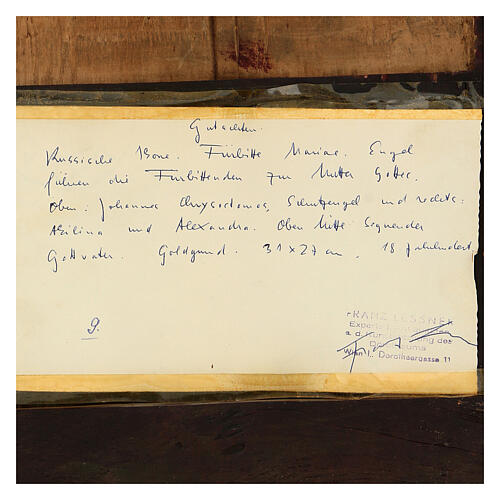 Gutachten.
Russische Ikone. Fürbitte Mariae. Engel
führen die Fürbittenden zur Mutter Gottes.
Oben: Johannes Chrysostomos, Schutzengel und rechts:
und Alexandra. Oben Mitte Segnender
Gottvater. Goldgrund. 31 x 27 cm, 18. Jahrhundert
9.
FRANZ LESSNER
a. d. des
Dorotheums
Wien I., Dorotheergasse 11